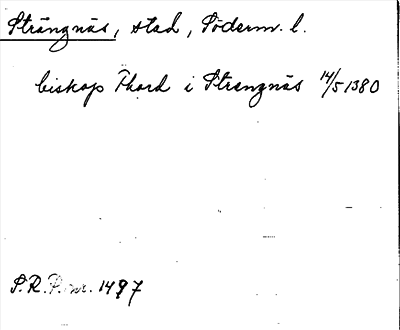 Strängnäs, stad, Söderm. l.
biskop Thord i Strengnäs 14/5 1380
S.R.P. nr. 1497